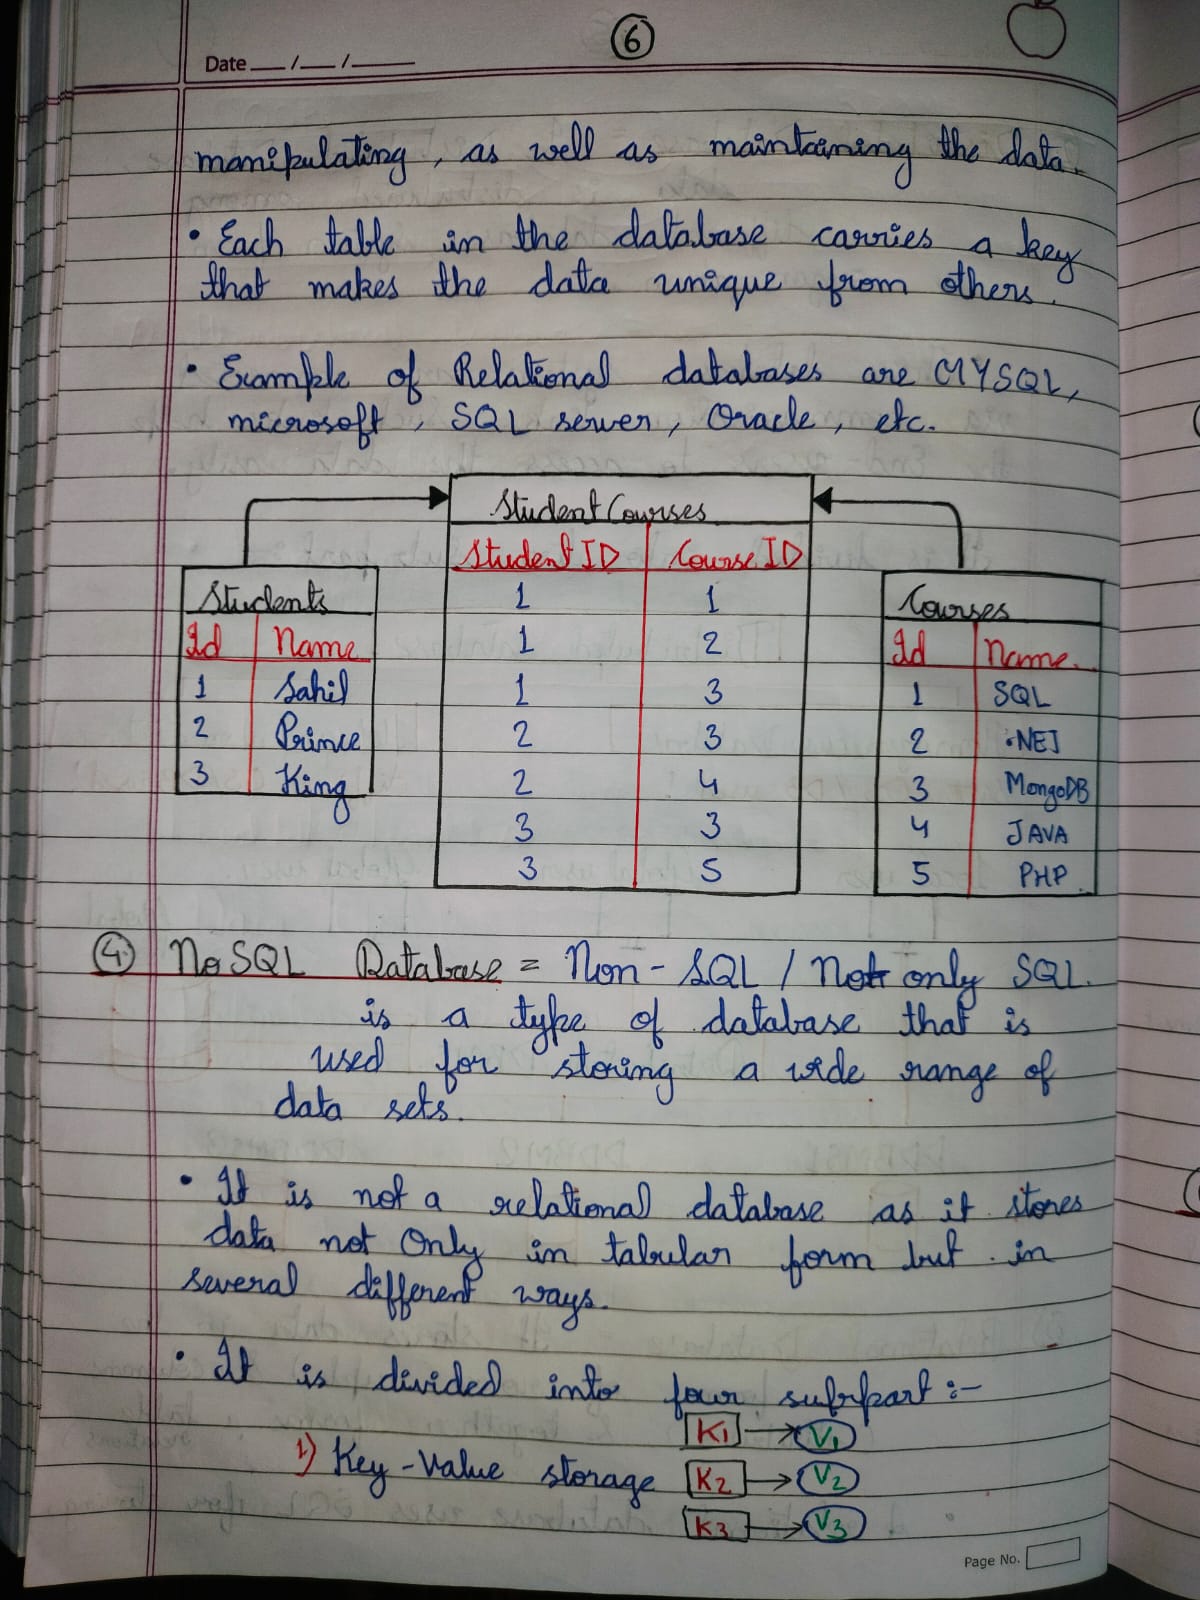 6
Date __/__/____
manipulating, as well as maintaining the data.
• Each table in the database carries a key
that makes the data unique from others.
• Example of Relational databases are MYSQL,
microsoft, SQL server, Oracle, etc.
Student Courses
Student ID Course ID
1 1
1 2
1 3
2 3
2 4
3 3
3 5
Students
Id Name
1 Sahil
2 Prince
3 King
Courses
Id Name
1 SQL
2 .NET
3 MongoDB
4 JAVA
5 PHP
4. No SQL Database = Non-SQL / Not only SQL
is a type of database that is
used for storing a wide range of
data sets.
• It is not a relational database as it stores
data not only in tabular form but in
several different ways.
• It is divided into four subpart :-
K1 → V1
1) Key-Value storage K2 → V2
K3 → V3
Page No.